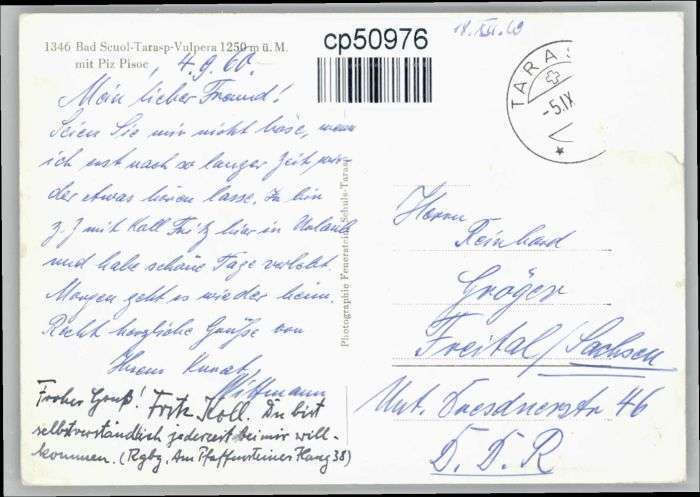 1346 Bad Scuol-Tarasp-Vulpera 1250 m ü. M.
mit Piz Pisoc
cp50976
18. XII. 60
TARAS
-5.IX
4. 9. 60.
Mein lieber Freund!
Seien Sie mir nicht böse, wenn
ich erst nach so langer Zeit wie-
der etwas hören lasse. Ich bin
z. Z mit Koll Fritz hier in Urlaub
und habe schöne Tage verlebt.
Morgen geht es wieder heim.
Recht herzliche Grüße von
Ihrem Kurat
Wittmann
Froher Gruß! Fritz Koll. Du bist
selbstverständlich jederzeit bei mir will-
kommen. (Rgbg. Am Pfaffensteiner Hang 38)
Photographie Feuerstein, Schuls-Tarasp
Herrn
Reinhard
Gröger
Freital/Sachsen
Unt. Dresdnerstr 46
D. D. R